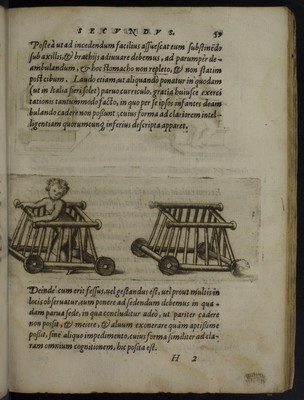 SECVNDVS. 59
Posteà ut ad incedendum facilius assuescat eum substinēdo
sub axillis, & brachijs adiuuare debemus, ad parumper de-
ambulandum, & hoc stomacho non repleto, & non statim
post cibum. Laudo etiam, ut aliquando ponatur in quodam
(ut in Italia fieri solet) paruo curriculo, gratia huiusce exerci
tationis tantummodo facto, in quo per se ipsos infantes deam
bulando cadere non possunt; cuius forma ad clariorem intel-
ligentiam quorumcunq; inferius descripta apparet.
Deinde cum erit fessus, uel gestandus est, uel prout multis in
locis obseruatur, eum ponere ad sedendum debemus in qua-
dam parua sede, in qua concluditur adeò, ut pariter cadere
non possit, & meiere, & aluum exonerare quàm aptissime
possit, sine aliquo impedimento, cuius forma similiter ad cla-
ram omnium cognitionem, hic posita est.
H 2